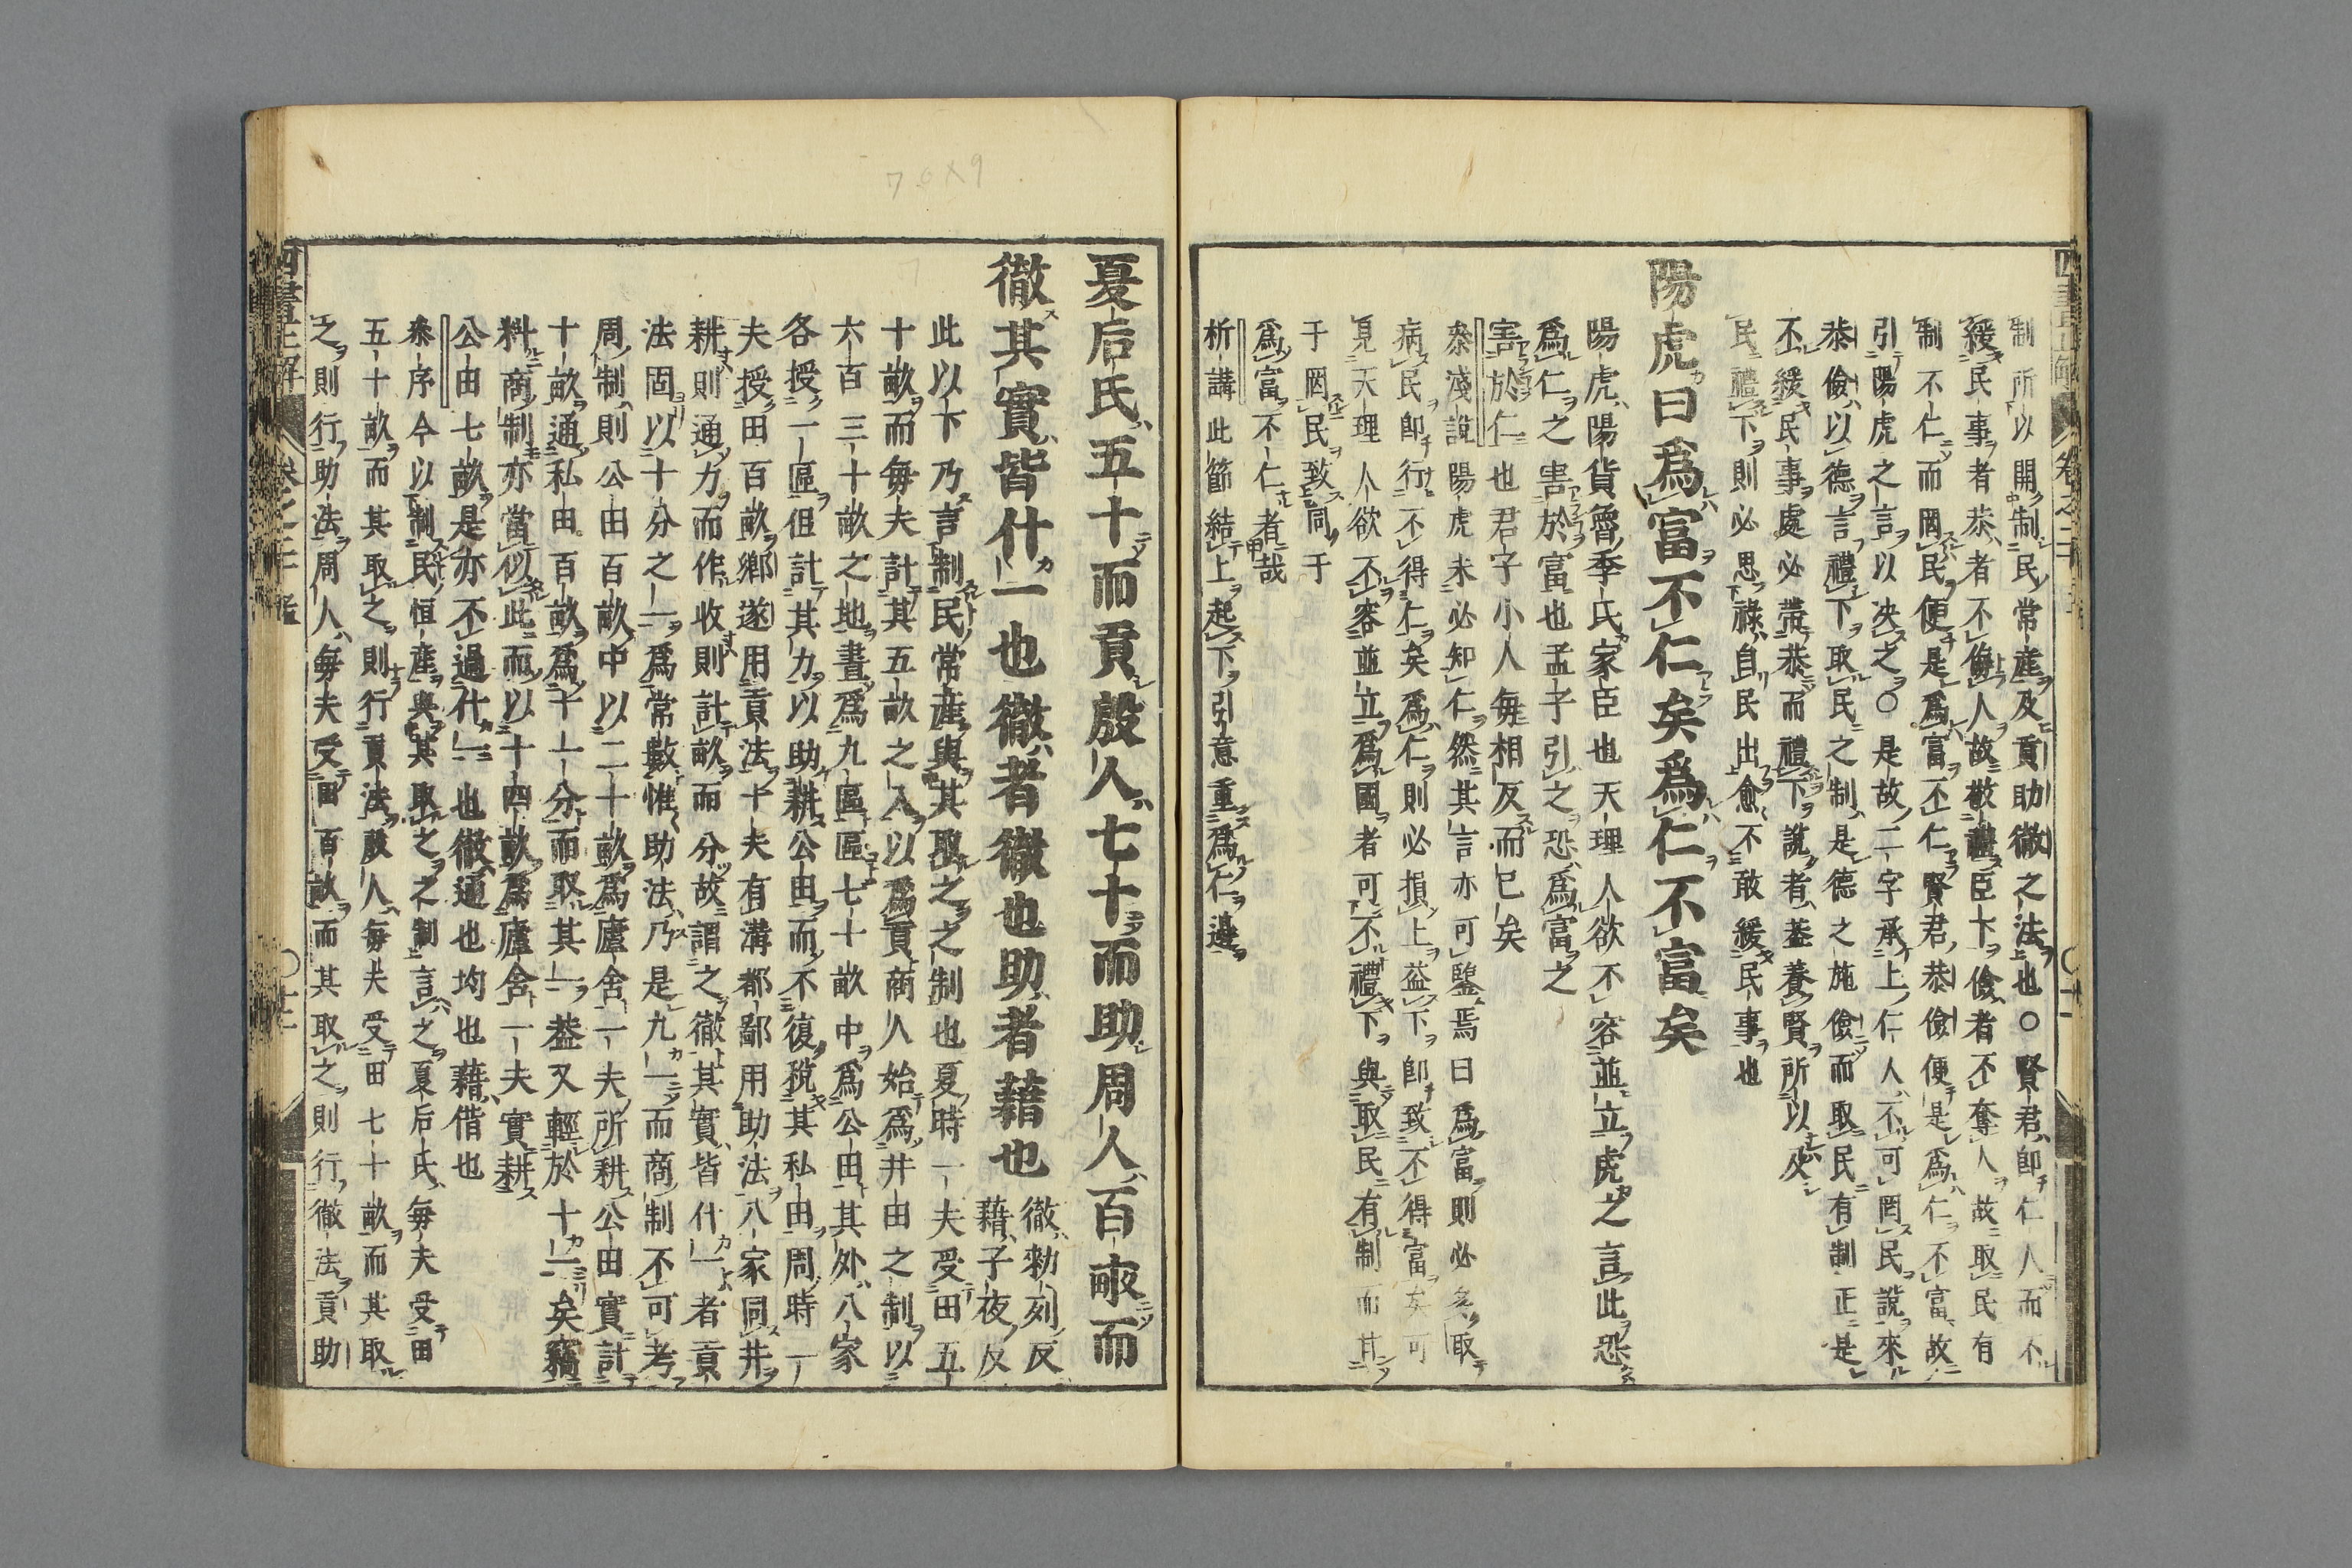 制所以開制民常産及貢助徹之法也○賢君即仁人而不
緩民事者恭者不侮人故敬禮臣下儉者不奪人故取民有
制不仁而罔民便是爲富不仁賢君恭儉便是爲仁不富故
引陽虎之言以决之○是故二字承上仁人不可罔民說來
恭儉以德言禮下取民之制是德之施儉而取民有制正是
不緩民事處必帶恭而禮下說者葢養賢所以及
民禮下則必思祿自民出愈不敢緩民事也
陽虎曰爲富不仁矣爲仁不富矣
陽虎陽貨魯季氏家臣也天理人欲不容並立虎之言此恐
爲仁之害於富也孟子引之恐爲富之
害於仁也君子小人每相反而已矣
泰淺說陽虎未必知仁然其言亦可鑒焉曰爲富則必多取
病民即行不得仁矣爲仁則必損上益下即致不得富矣可
見天理人欲不容並立爲國者可不禮下與取民有制而其
于罔民致同于
爲富不仁者哉
析講此節結上起下引意重爲仁邊
夏后氏五十而貢殷人七十而助周人百畝而
徹其實皆什一也徹者徹也助者藉也
徹勑列反
藉子夜反
此以下乃言制民常産與其取之之制也夏時一夫受田五
十畝而毎夫計其五畝之入以爲貢商人始爲井田之制以
六百三十畝之地畫爲九區區七十畝中爲公田其外八家
各授一區但計其力以助耕公田而不復稅其私田周時一
夫授田百畝鄉遂用貢法十夫有溝都鄙用助法八家同井
耕則通力而作收則計畝而分故謂之徹其實皆什一者貢
法固以十分之一爲常數惟助法乃是九一而商制不可考
周制則公田百畝中以二十畝爲廬舍一夫所耕公田實計
十畝通私田百畝爲十一分而取其一葢又輕於十一矣竊
料商制亦當似此而以十四畝爲廬舍一夫實耕
公田七畝是亦不過什一也徹通也均也藉借也
泰序今以制民恒産與其取之之制言之夏后氏每夫受田
五十畝而其取之則行貢法殷人每夫受田七十畝而其取
之則行助法周人每夫受田百畝而其取之則行徹法貢助